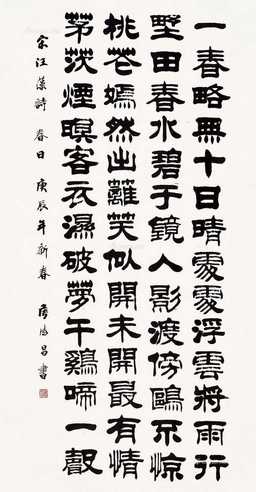 一春略無十日晴處處浮雲將雨行
墅田春水碧于鏡人影渡傍鷗不驚
桃花嫣然出蘺笑似開未開最有情
茅茨煙暝客衣濕破夢午鷄啼一聲
宋汪藻詩 春日 庚辰年新春 昌書